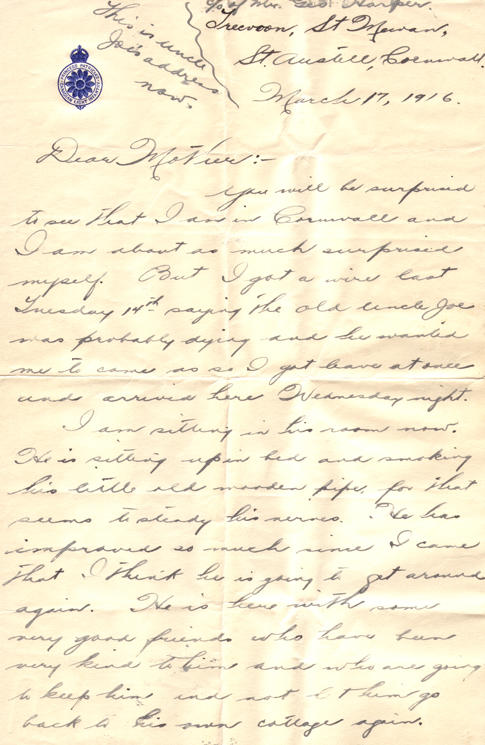 This is uncle
Joe's address
now.
℅ of Mr. Geo. Harper.
Trevoon, St Mewan,
St. Austell, Cornwall.
March 17, 1916.
Dear Mother:-
You will be surprised
to see that I am in Cornwall and
I am about as much surprised
myself. But I got a wire last
Tuesday 14th saying the old uncle Joe
was probably dying and he wanted
me to come so I got leave at once
and arrived here Wednesday night.
I am sitting in his room now.
He is sitting up in bed and smoking
his little old wooden pipe, for that
seems to steady his nerves. He has
improved so much since I came
that I think he is going to get around
again. He is here with some
very good friends who have been
very kind to him and who are going
to keep him and not let him go
back to his own cottage again.